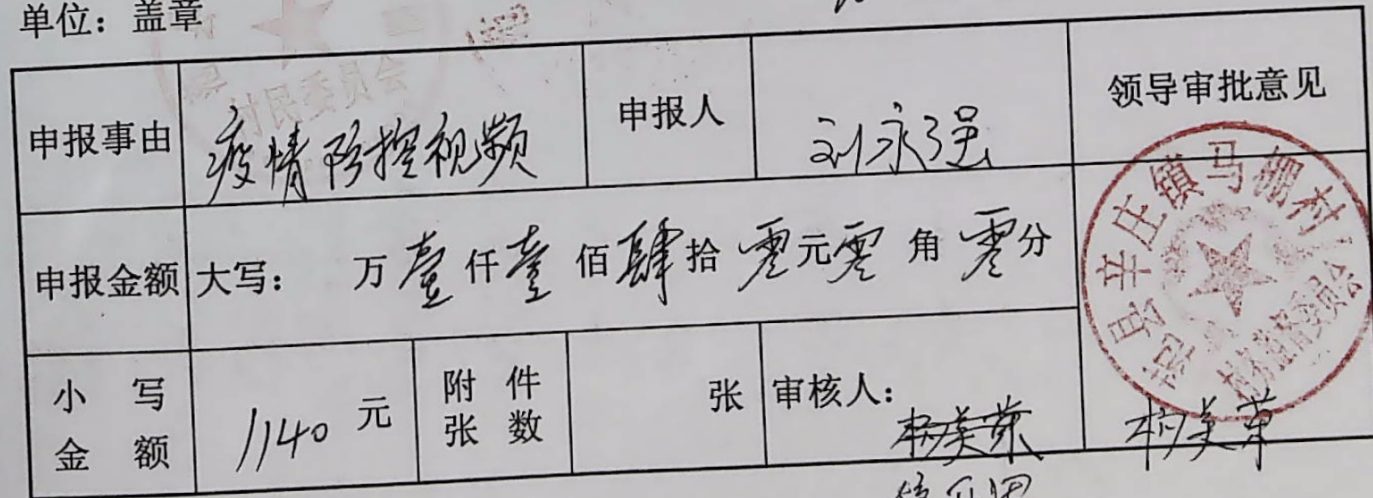 单位：盖章
村民委员会
申报事由 疫情防控视频 申报人 刘永强 领导审批意见
申报金额 大写： 万壹仟壹佰肆拾零元零角零分
范县辛庄镇马棚村
村务监督委员会
小写金额 1140元 附件张数 张 审核人：
杨美荣 杨美荣